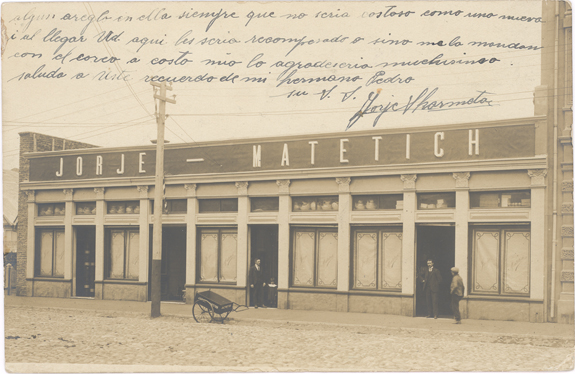 algun areglo en ella siempre que no seria costoso como una nueva
i al llegar Ud. aqui les seria recompensado o sino me la mandan
con el correo a costo mio lo agradeseria muchisimo.
saluda a Uste recuerdo de mi hermano Pedro
su S. S. Jorje
JORJE — MATETICH